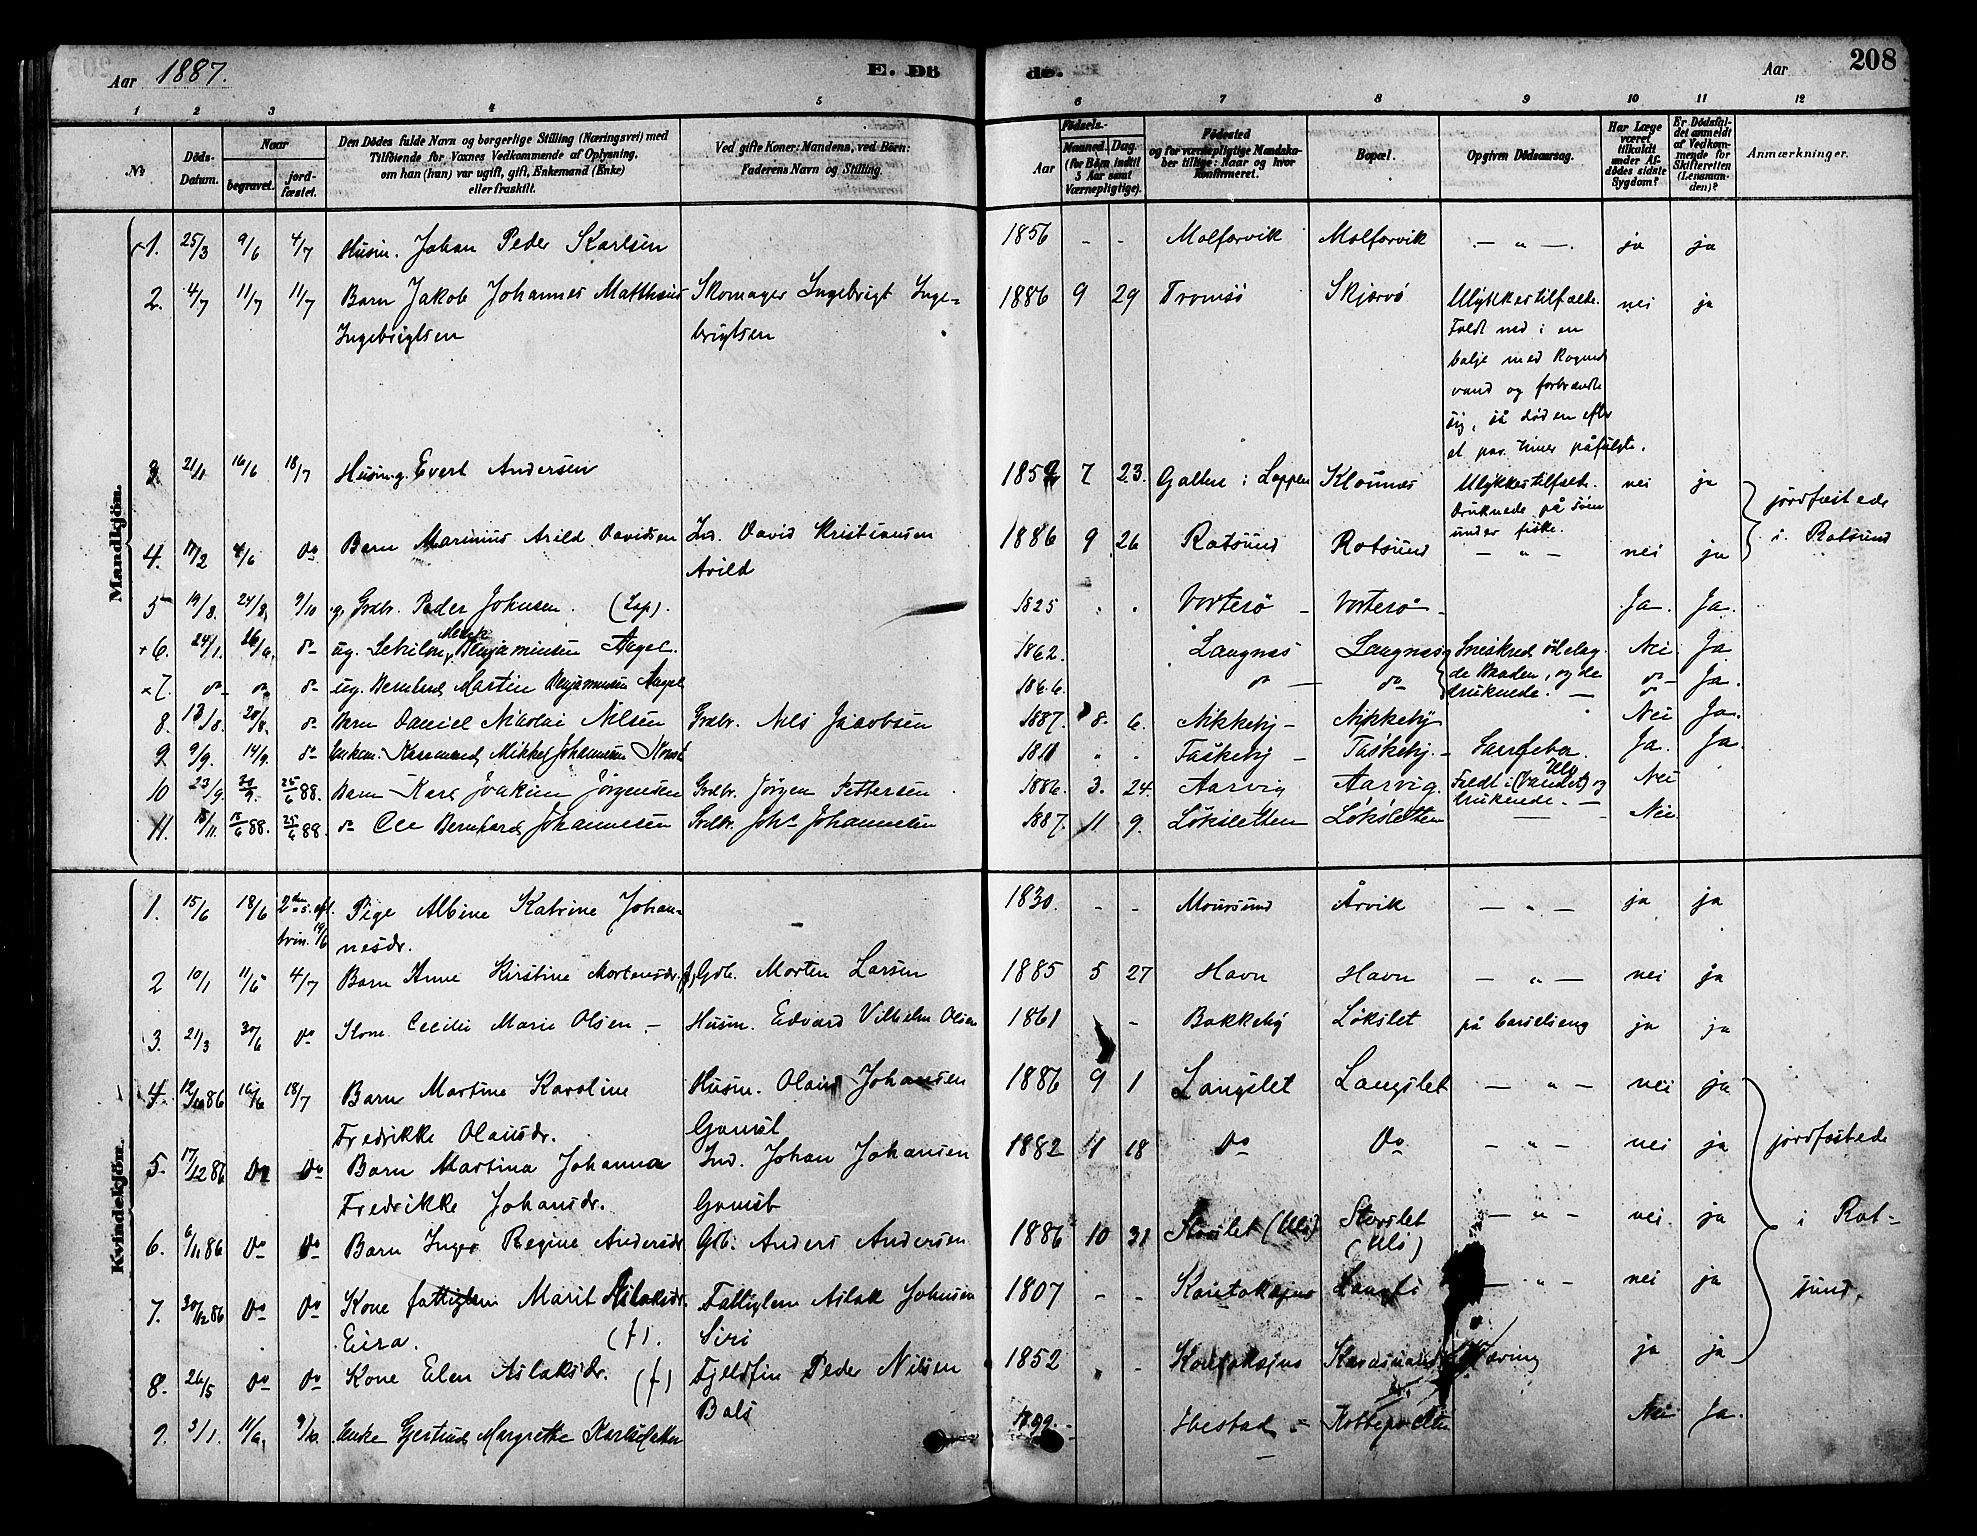 Aar 1887. E. Dö de. Aar 208
1 2 3 4 5 6 7 8 9 10 11 12
No Döds-Datum. Naar begravet. jord-fæstet. Den Dödes fulde Navn og borgerlige Stilling (Næringsvei) med Tilföiende for Voxnes Vedkommende af Oplysning, om han (hun) var ugift, gift, Enkemand (Enke) eller fraskilt. Ved gifte Koner: Mandens, ved Börn: Faderens Navn og Stilling. Födsels- Aar Maaned. Dag. (for Börn indtil 5 Aar samt Værnepligtige). Födested og for værnepligtige Mandskaber tillige: Naar og hvor konfirmeret. Bopæl. Opgiven Dödsaarsag. Har Læge været tilkaldt under Afdödes sidste Sygdom? Er Dödsfaldet anmeldt af Vedkommende for Skifteretten (Lensmanden)? Anmærkninger.
Mandkjön.
1. 25/3 9/6 4/7 Husm. Johan Peder Karlsen 1856 - - Molforvik Molforvik — " —. ja ja
2. 4/7 11/7 11/7 Barn Jakob Johannes Matthæus Skomager Ingebrigt Inge= 1886 9 29 Tromsö Skjærvö Ulykkestilfælde. nei ja
Ingebrigtsen brigtsen Faldt ned i en
balje med kogende
vand og forbrændte
sig, så döden efter
et par timer påfulgte.
3 21/1 16/6 18/7 Husm. g. Evert Andersen 1859 7 23. Galten i Loppen Klounæs Ulykkestilfælde. nei ja jordfæstede
Druknede på söen
under fiske.
4. 17/2 4/6 do Barn Marinius Arild Davidsen Ind. David Kristiansen 1886 9 26 Rotsund Rotsund — " — nei ja i Rotsund
Arild
5 19/8. 24/8. 9/10 g. Grdbr. Peder Johnsen. (Lap). 1825 . . Vorterö - Vorterö - Ja. Ja.
+6. 24/1. 26/6. do ug. Benjaminsen Aagel. 1862. Langnæs Langnæs Sneskred ödelag- Nei Ja
×7. do do do ug. Bernhard Martin Benjaminsen Aagel 1866. do — do de Baaden, og de druknede. — do Ja.
8. 13/8. 20/8. do Barn Daniel Nikolai Nilsen Grdbr. Nils Jacobsen 1887. 8. 6. Nikkeby - Nikkeby Nei Ja.
9 9/9. 14/9. do Enkem. Mikkel Johannesen 1811 " " Taskeby - Taskeby. - Ja. Ja.
10 23/9. 30/9. 25/6 88. Barn Karl Joakim Jörgensen Grdbr. Jörgen Pettersen 1886. 3. 24. Aarvig Aarvig. Faldt i (Vandet) og druknede. — Nei
11. 18/11. 15/6 88. 25/6 88. do Ole Bernhard Johannesen Grdbr. Johs Johannesen 1887. 11 9. Löksletten Löksletten — Nei
Kvindekjön.
1. 15/6 18/6 2den s. eft. Pige Albine Katrine Johan= 1830. - - Maursund Årvik — " — ja ja
trin. 19/6 nesdr.
2 10/1 11/6 4/7 Barn Anne Kirstine Mortensdr. Gdb. Morten Larsen 1885 5 27 Havn Havn — " — nei ja
3. 21/3 30/6 do Kone Cecilie Marie Olsen — Husm. Edvard Vilhelm Olsen 1861 - - Bakkeby Lökslet på barselseng ja ja
4. 12/10 86 16/6 18/7 Barn Martine Karoline Husm. Olaus Johansen 1886 9 1 Langslet Langslet — " — nei ja
Fredrikke Olausdr. Gamst
5. 17/12 86 do do Barn Martina Johanna Ind. Johan Johansen 1882 11 18 do do — " — nei ja jordfæstede
Fredrikke Johansdr. Gamst
6. 6/11 86 do do Barn Inger Regine Andersdr Gdb. Anders Andersen 1886 10 31 Storslet (Ulö) Storslet (Ulö) — " — nei ja i Rot-
7. 30/12 86 do do Kone fattiglem Marit Aslaksdr. Fattiglem Aslak Johnsen 1807 - - Koutokejno — " — nei ja sund.
Eira. (f). Siri
8. 26/5 do do Kone Elen Aslaksdr. (f) Fjeldfin Peder Nilsen 1852 " - Koutokejno Tæring ja ja
Bals
9. 3/1. 11/6. 9/10. Enke Gjertrud Margrethe 1799. - Ibestad - Nei Ja.